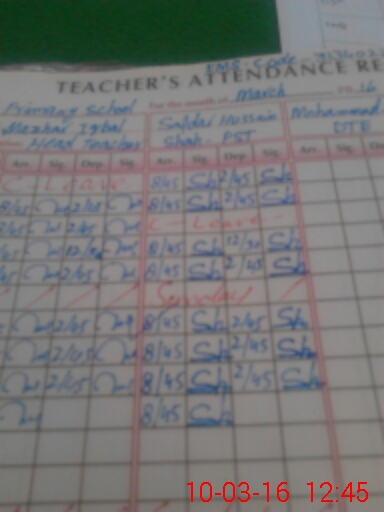 TEACHER'S ATTENDANCE RE
Primary School
For the month of March 16
Mazhar Iqbal
Head Teacher
Safdar Hussain
Shah. PST
Mohammad
Arr. Sig. Dep. Sig. Arr. Sig. Dep. Sig. Arr. Sig.
C-Leave 8/45 Sh 2/45 Sh
8/45 2/45 8/45 Sh 2/45 Sh
8/45 2/45 C-Leave-
8/45 12/30 8/45 Sh 12/30 Sh
8/45 2/45 8/45 Sh 2/45 Sh
Sunday
2/45 8/45 Sh 2/45 Sh
2/45 8/45 Sh 2/45 Sh
2/45 8/45 Sh 2/45 Sh
8/45 Sh
10-03-16 12:45